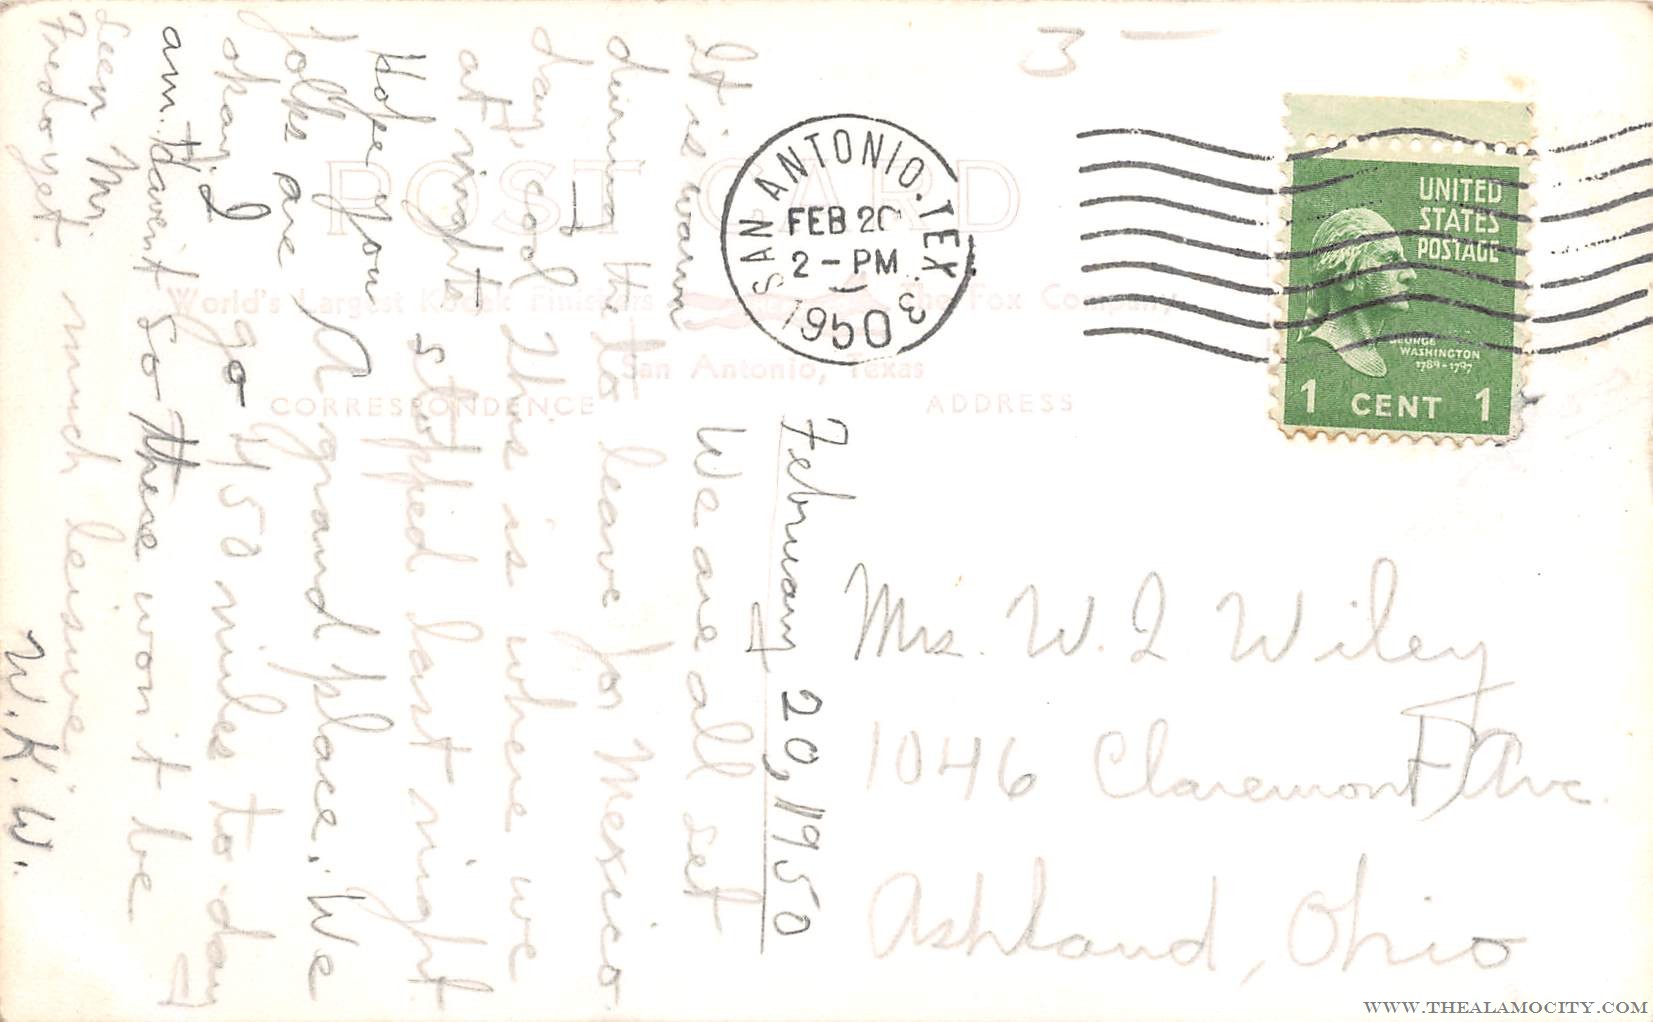 POST CARD
World's Largest Kodak Finishers
The Fox Company
San Antonio, Texas
CORRESPONDENCE
ADDRESS
3 —
SAN ANTONIO, TEX. 3
FEB 20
2 - PM
1950
UNITED
STATES
POSTAGE
GEORGE
WASHINGTON
1789-1797
1 CENT 1
February 20, 1950
We are all set
to leave for Mexico.
This is where we
stopped last night
A grand place. We
go 450 miles to-day
so there won't be
much leisure.
W.K.W.
It is warm
during the
day, cool
at night
Hope you
folks are
okay. I
am. Haven't
seen Mr.
yet.
Mrs. W. I Wiley
1046 Claremont Ave.
Ashland, Ohio
WWW.THEALAMOCITY.COM